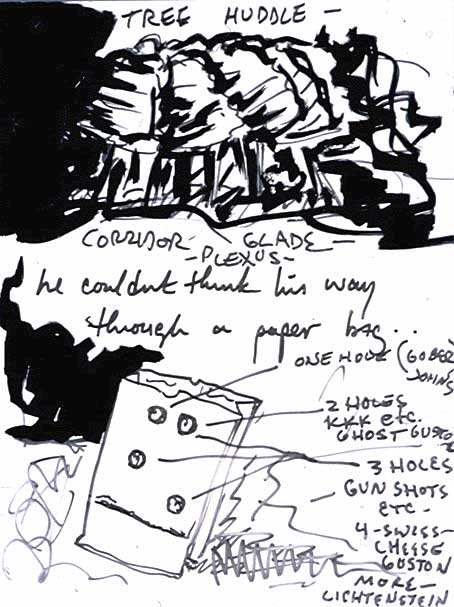 TREE HUDDLE —
CORRIDOR GLADE —
-PLEXUS-
he couldnt think his way
through a paper bag...
ONE HOLE (GOBER
JOHNS
2 HOLES
KKK etc.
GHOST GUSTO
3 HOLES
GUN SHOTS
ETC -
4-SWISS-
CHEESE
GUSTON
MORE -
LICHTENSTEIN